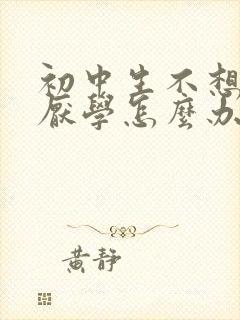 初中生不想
厭學怎麼办
黄静